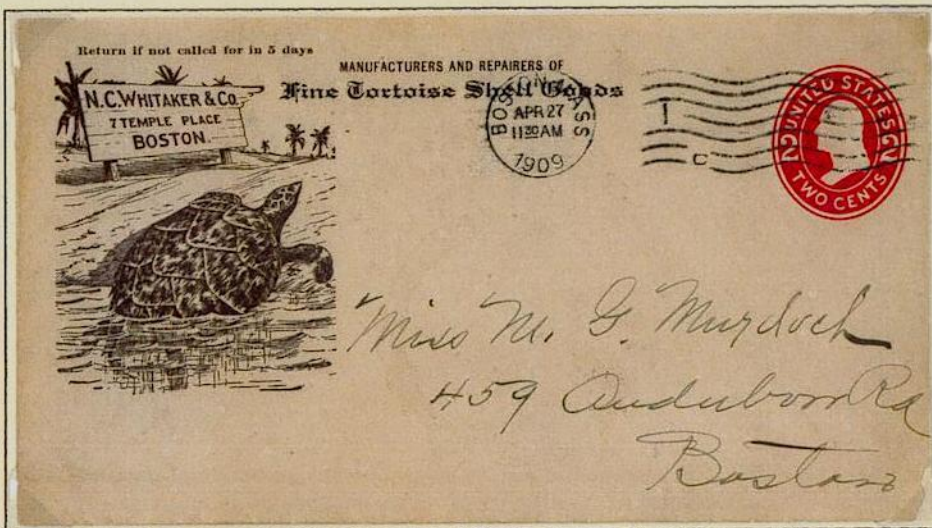 Return if not called for in 5 days
N.C. WHITAKER & CO.
7 TEMPLE PLACE
BOSTON.
MANUFACTURERS AND REPAIRERS OF
Fine Tortoise Shell Goods
BOSTON, MASS
APR 27
11 30 AM
1909
C
UNITED STATES
2 2
TWO CENTS
Miss M. G. Murdoch
459 Audubon Rd
Boston